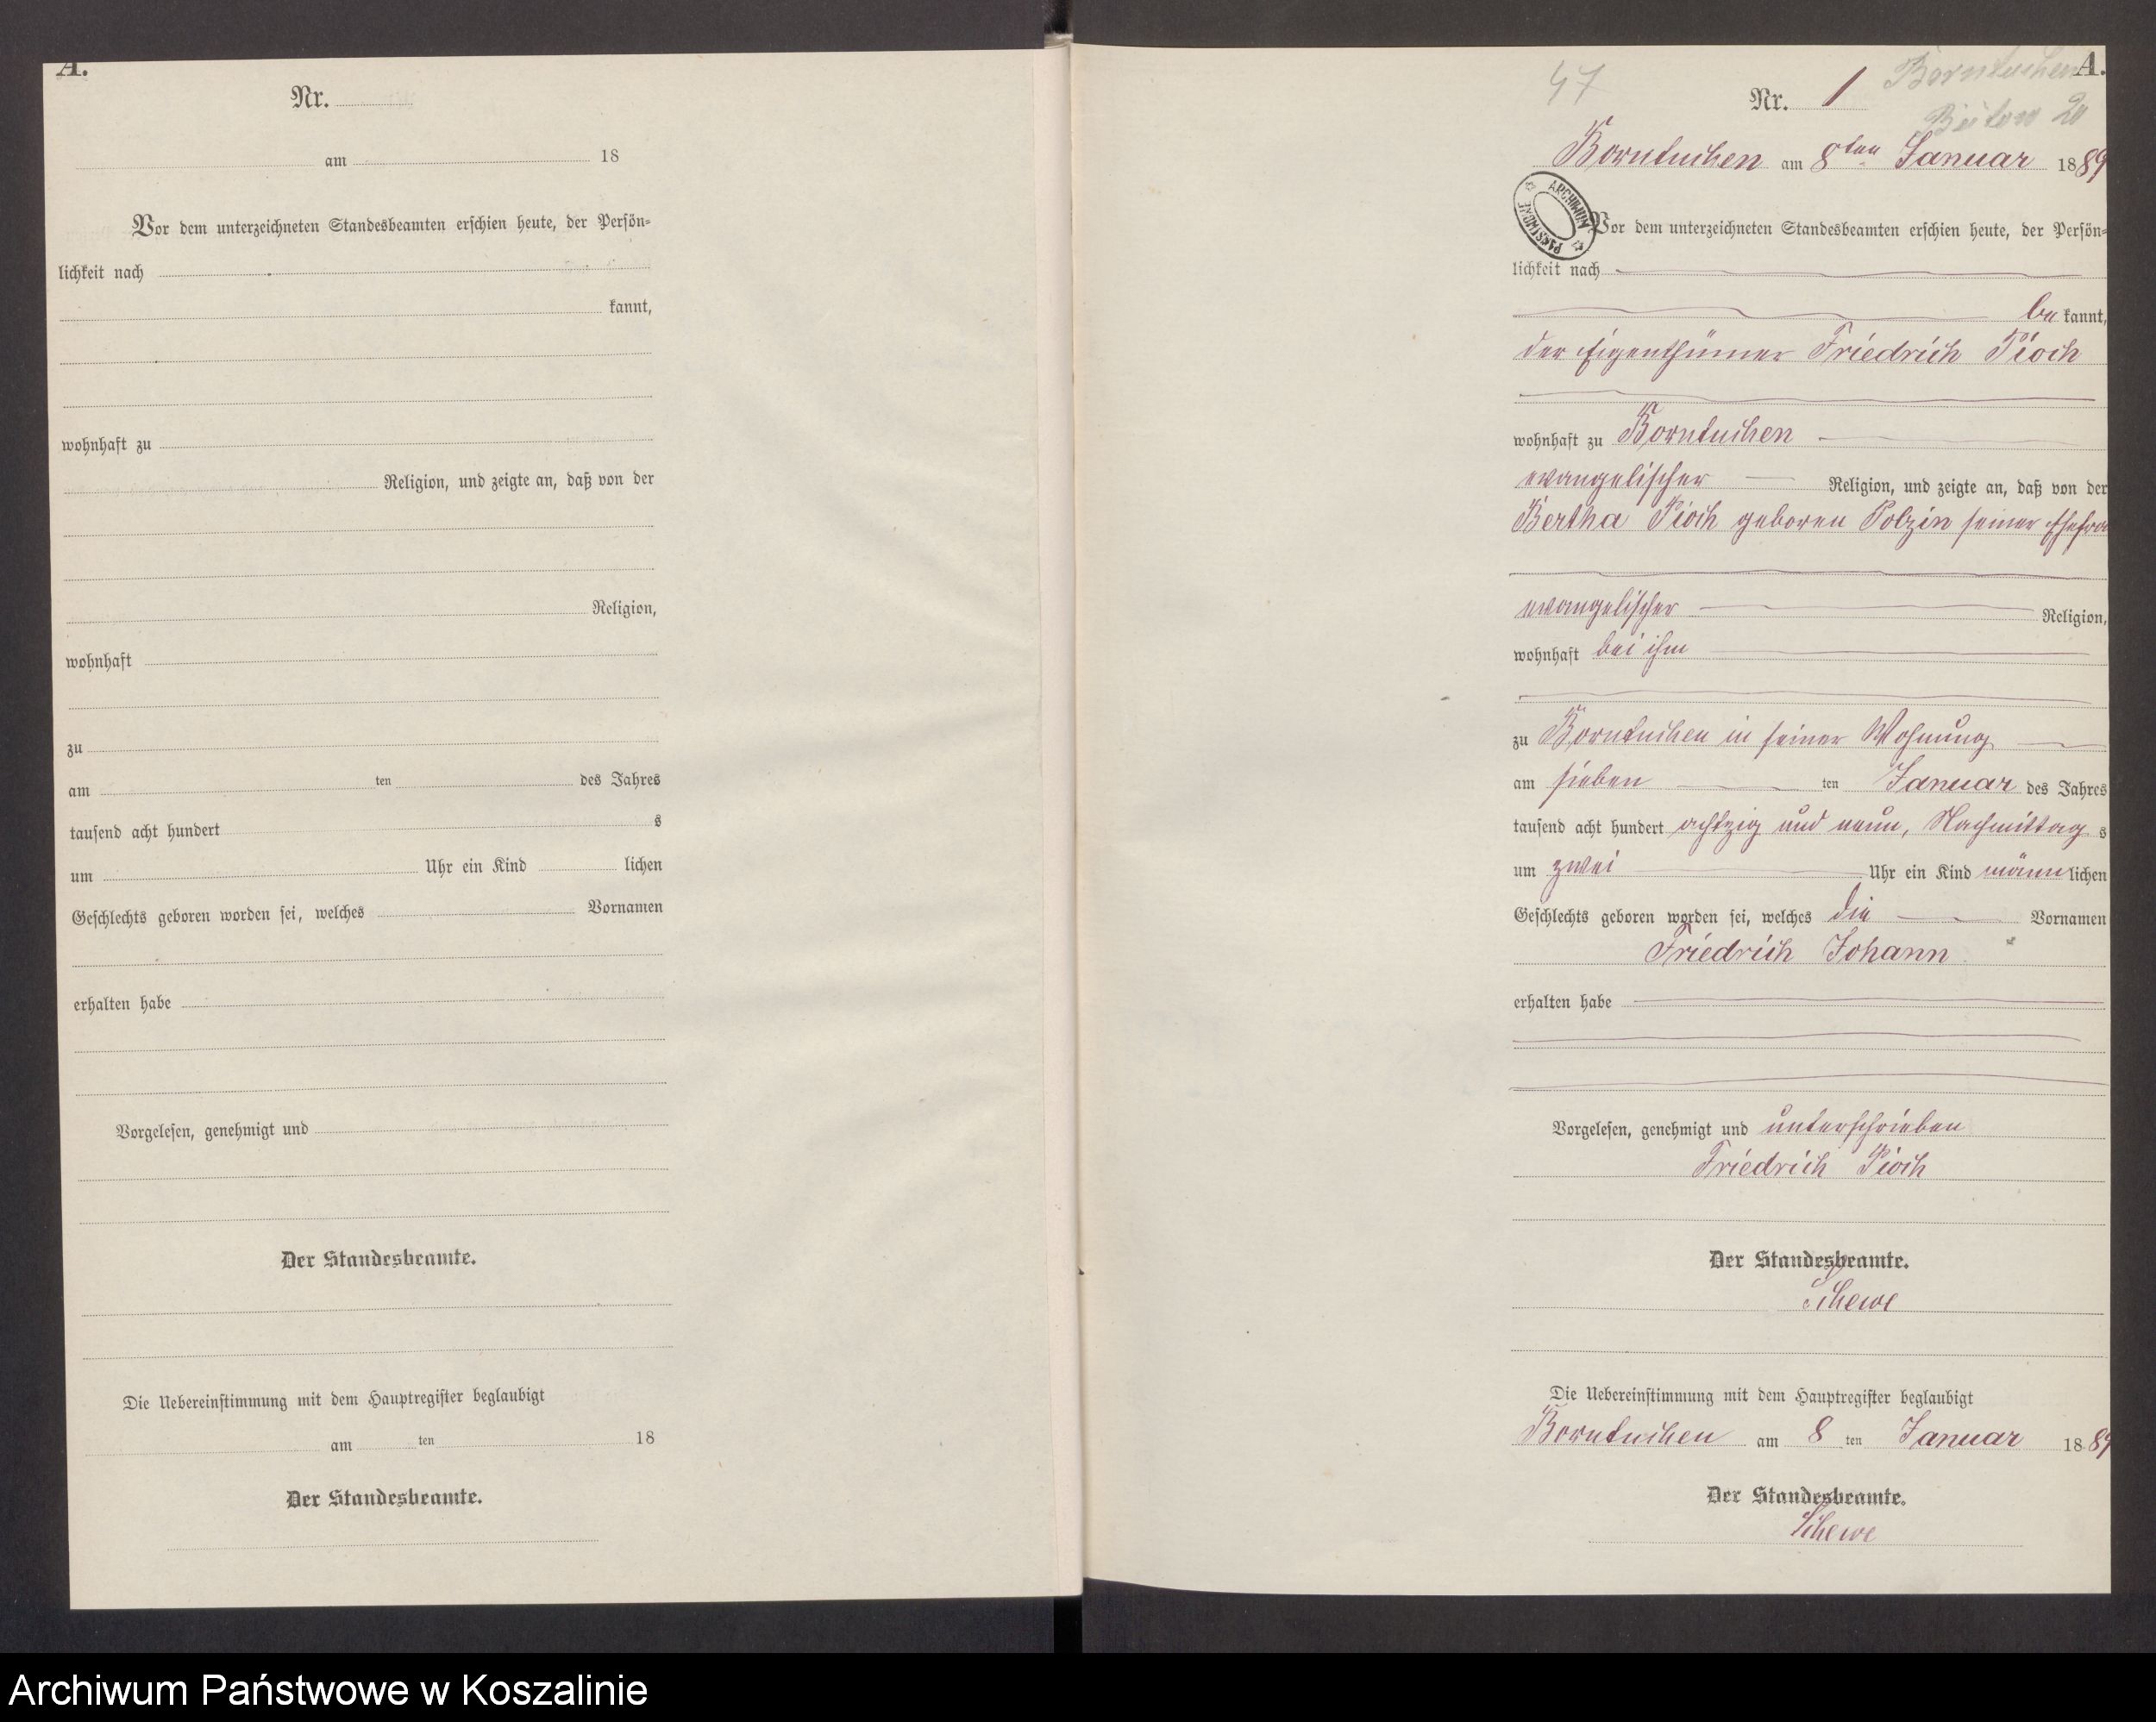 A.
Nr.
am 18
Vor dem unterzeichneten Standesbeamten erschien heute, der Persön-
lichkeit nach
kannt,
wohnhaft zu
Religion, und zeigte an, daß von der
Religion,
wohnhaft
zu
am ten des Jahres
tausend acht hundert s
um Uhr ein Kind lichen
Geschlechts geboren worden sei, welches Vornamen
erhalten habe
Vorgelesen, genehmigt und
Der Standesbeamte.
Die Uebereinstimmung mit dem Hauptregister beglaubigt
am ten 18
Der Standesbeamte.
47 Borntuchen A.
Nr. 1
Bütow 20
Borntuchen am 8ten Januar 1889
ARCHIWUM PAŃSTWOWE
Vor dem unterzeichneten Standesbeamten erschien heute, der Persön-
lichkeit nach
be kannt,
der Eigenthümer Friedrich Pioch
wohnhaft zu Borntuchen
evangelischer Religion, und zeigte an, daß von der
Bertha Pioch geboren Polzin seiner Ehefra
evangelischer Religion,
wohnhaft bei ihm
zu Borntuchen in seiner Wohnung
am sieben ten Januar des Jahres
tausend acht hundert achtzig und neun, Nachmittag s
um zwei Uhr ein Kind männ lichen
Geschlechts geboren worden sei, welches die Vornamen
Friedrich Johann
erhalten habe
Vorgelesen, genehmigt und unterschrieben
Friedrich Pioch
Der Standesbeamte.
Schewe
Die Uebereinstimmung mit dem Hauptregister beglaubigt
Borntuchen am 8 ten Januar 1889
Der Standesbeamte.
Schewe
Archiwum Państwowe w Koszalinie